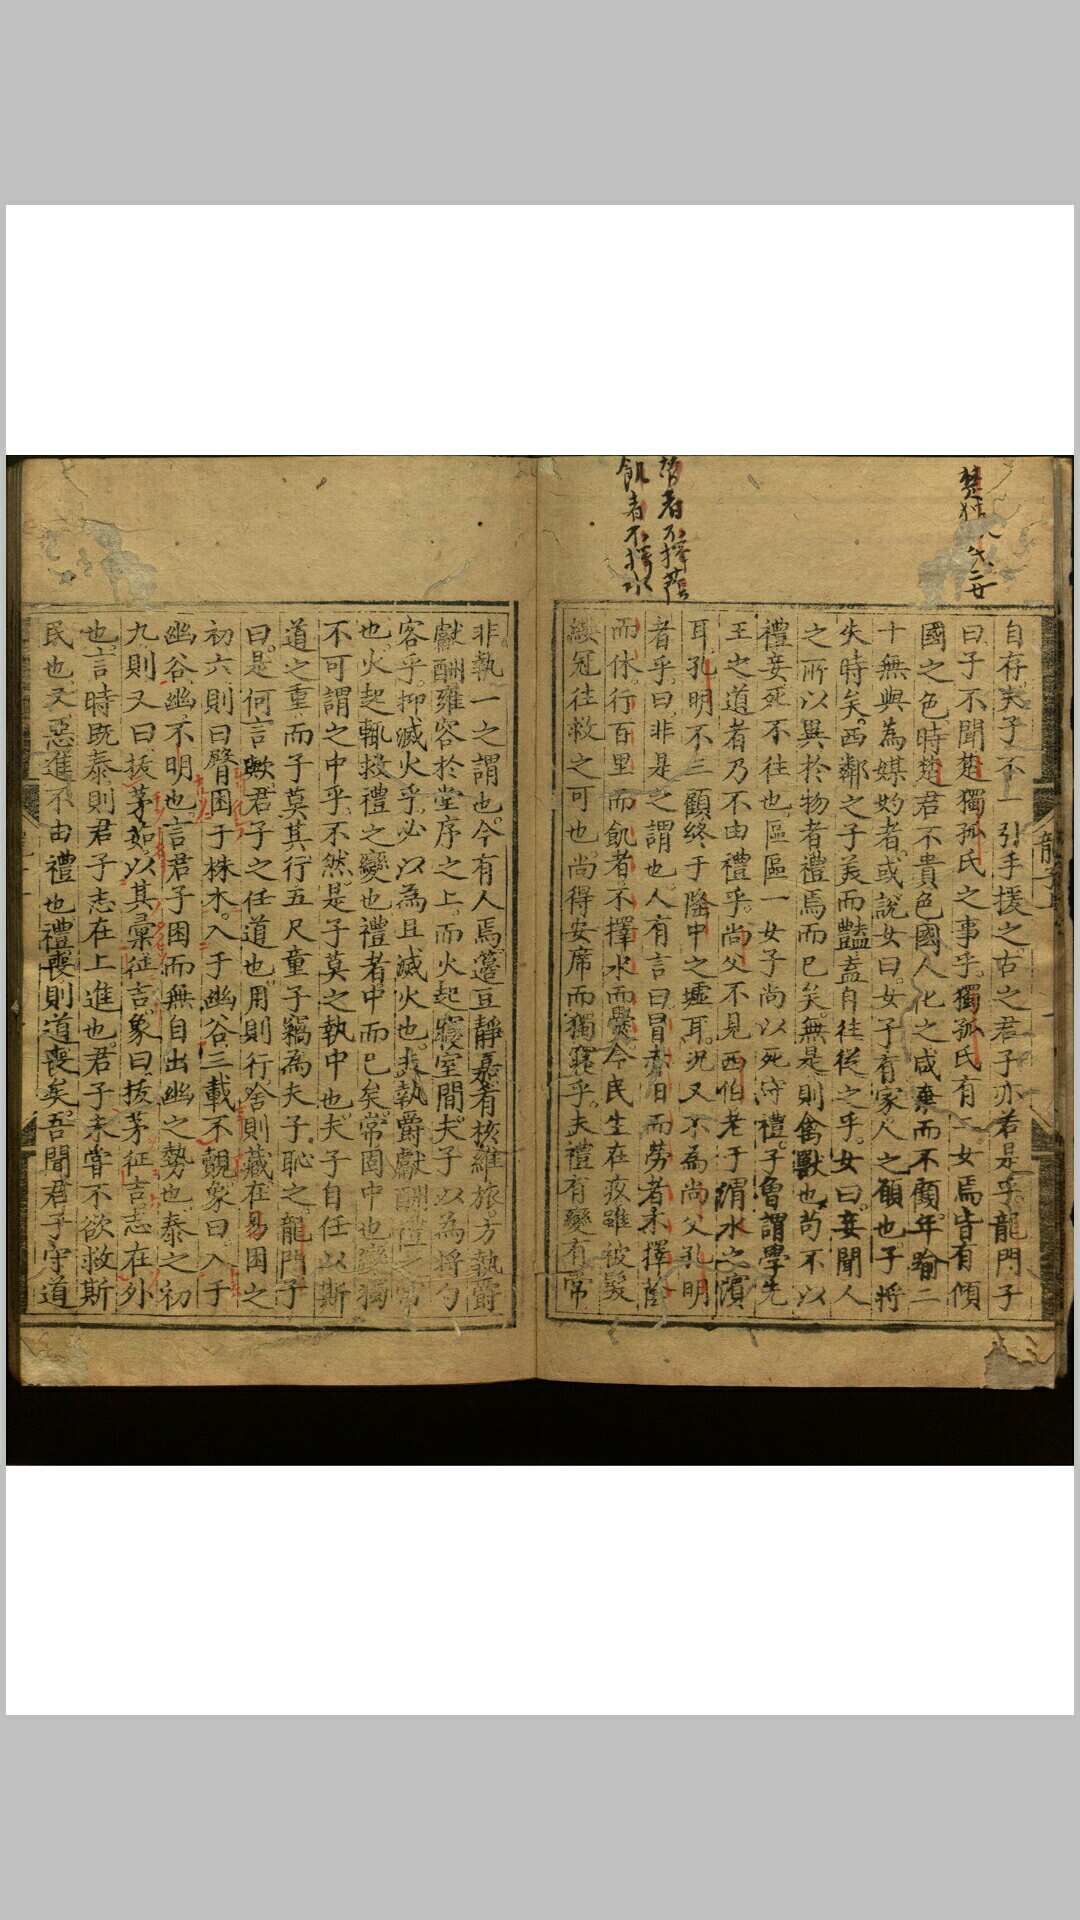 自存夫子不一引手援之古之君子亦若是乎龍門子
曰子不聞楚獨孤氏之事乎獨孤氏有二女焉皆有傾
國之色時楚君不貴色國人化之咸棄而不顧年踰二
十無與為媒妁者或說女曰女子有家人之願也子將
失時矣西鄰之子美而豔盍自往從之乎女曰妾聞人
之所以異於物者禮焉而已矣無是則禽獸也苟不以
禮妾死不往也區區一女子尚以死守禮子曾謂學先
王之道者乃不由禮乎尚父不見西伯老于渭水之濱
耳孔明不三顧終于隆中之墟耳況又不為尚父孔明
者乎曰非是之謂也人有言曰冒赤日而勞者不擇蔭
而休行百里而飢者不擇水而爨今民生在疚雖被髮
纓冠往救之可也尚得安席而獨寢乎夫禮有變有常
者不擇蔭
飢者不擇水
龍子
非執一之謂也今有人焉籩豆靜嘉殽核維旅方執爵
獻酬雍容於堂序之上而火起寢室間夫子以為將勺
容乎抑滅火乎必以為且滅火也夫執爵獻酬禮之常
也火起輒救禮之變也禮者中而已矣常固中也變獨
不可謂之中乎不然是子莫之執中也夫子自任以斯
道之重而子莫其行五尺童子竊為夫子恥之龍門子
曰是何言歟君子之任道也用則行舍則藏在易困之
初六則曰臀困于株木入于幽谷三載不覿象曰入于
幽谷幽不明也言君子困而無自出幽之勢也泰之初
九則又曰拔茅茹以其彙征吉象曰拔茅征吉志在外
也言時既泰則君子志在上進也君子未嘗不欲救斯
民也又惡進不由禮也禮喪則道喪矣吾聞君子守道